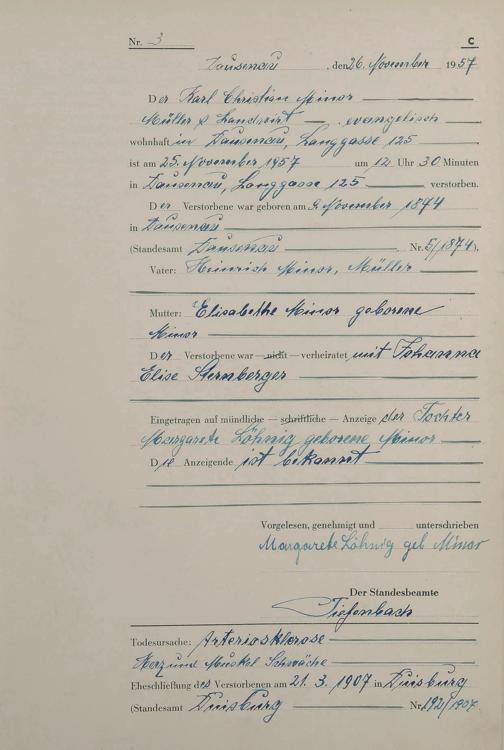 Nr. 3 C
Dausenau, den 26. November 1957
Der Karl Christian Minor
Müller & Landwirt —, evangelisch
wohnhaft in Dausenau, Langgasse 125
ist am 25. November 1957 um 12 Uhr 30 Minuten
in Dausenau, Langgasse 125 verstorben.
Der Verstorbene war geboren am 9. November 1874
in Dausenau
(Standesamt Dausenau Nr. 5/1874).
Vater: Heinrich Minor, Müller
Mutter: Elisabethe Minor geborene
Minor
Der Verstorbene war — nicht — verheiratet mit Johanna
Elise Sternberger
Eingetragen auf mündliche — schriftliche — Anzeige der Tochter
Margarete Löhnig geborene Minor
Die Anzeigende ist bekannt
Vorgelesen, genehmigt und unterschrieben
Margarete Löhnig geb Minor
Der Standesbeamte
Tiefenbach
Todesursache: Arteriosklerose
Herz und Muskel Schwäche
Eheschließung des Verstorbenen am 21. 3. 1907 in Duisburg
(Standesamt Duisburg Nr. 192/1907.